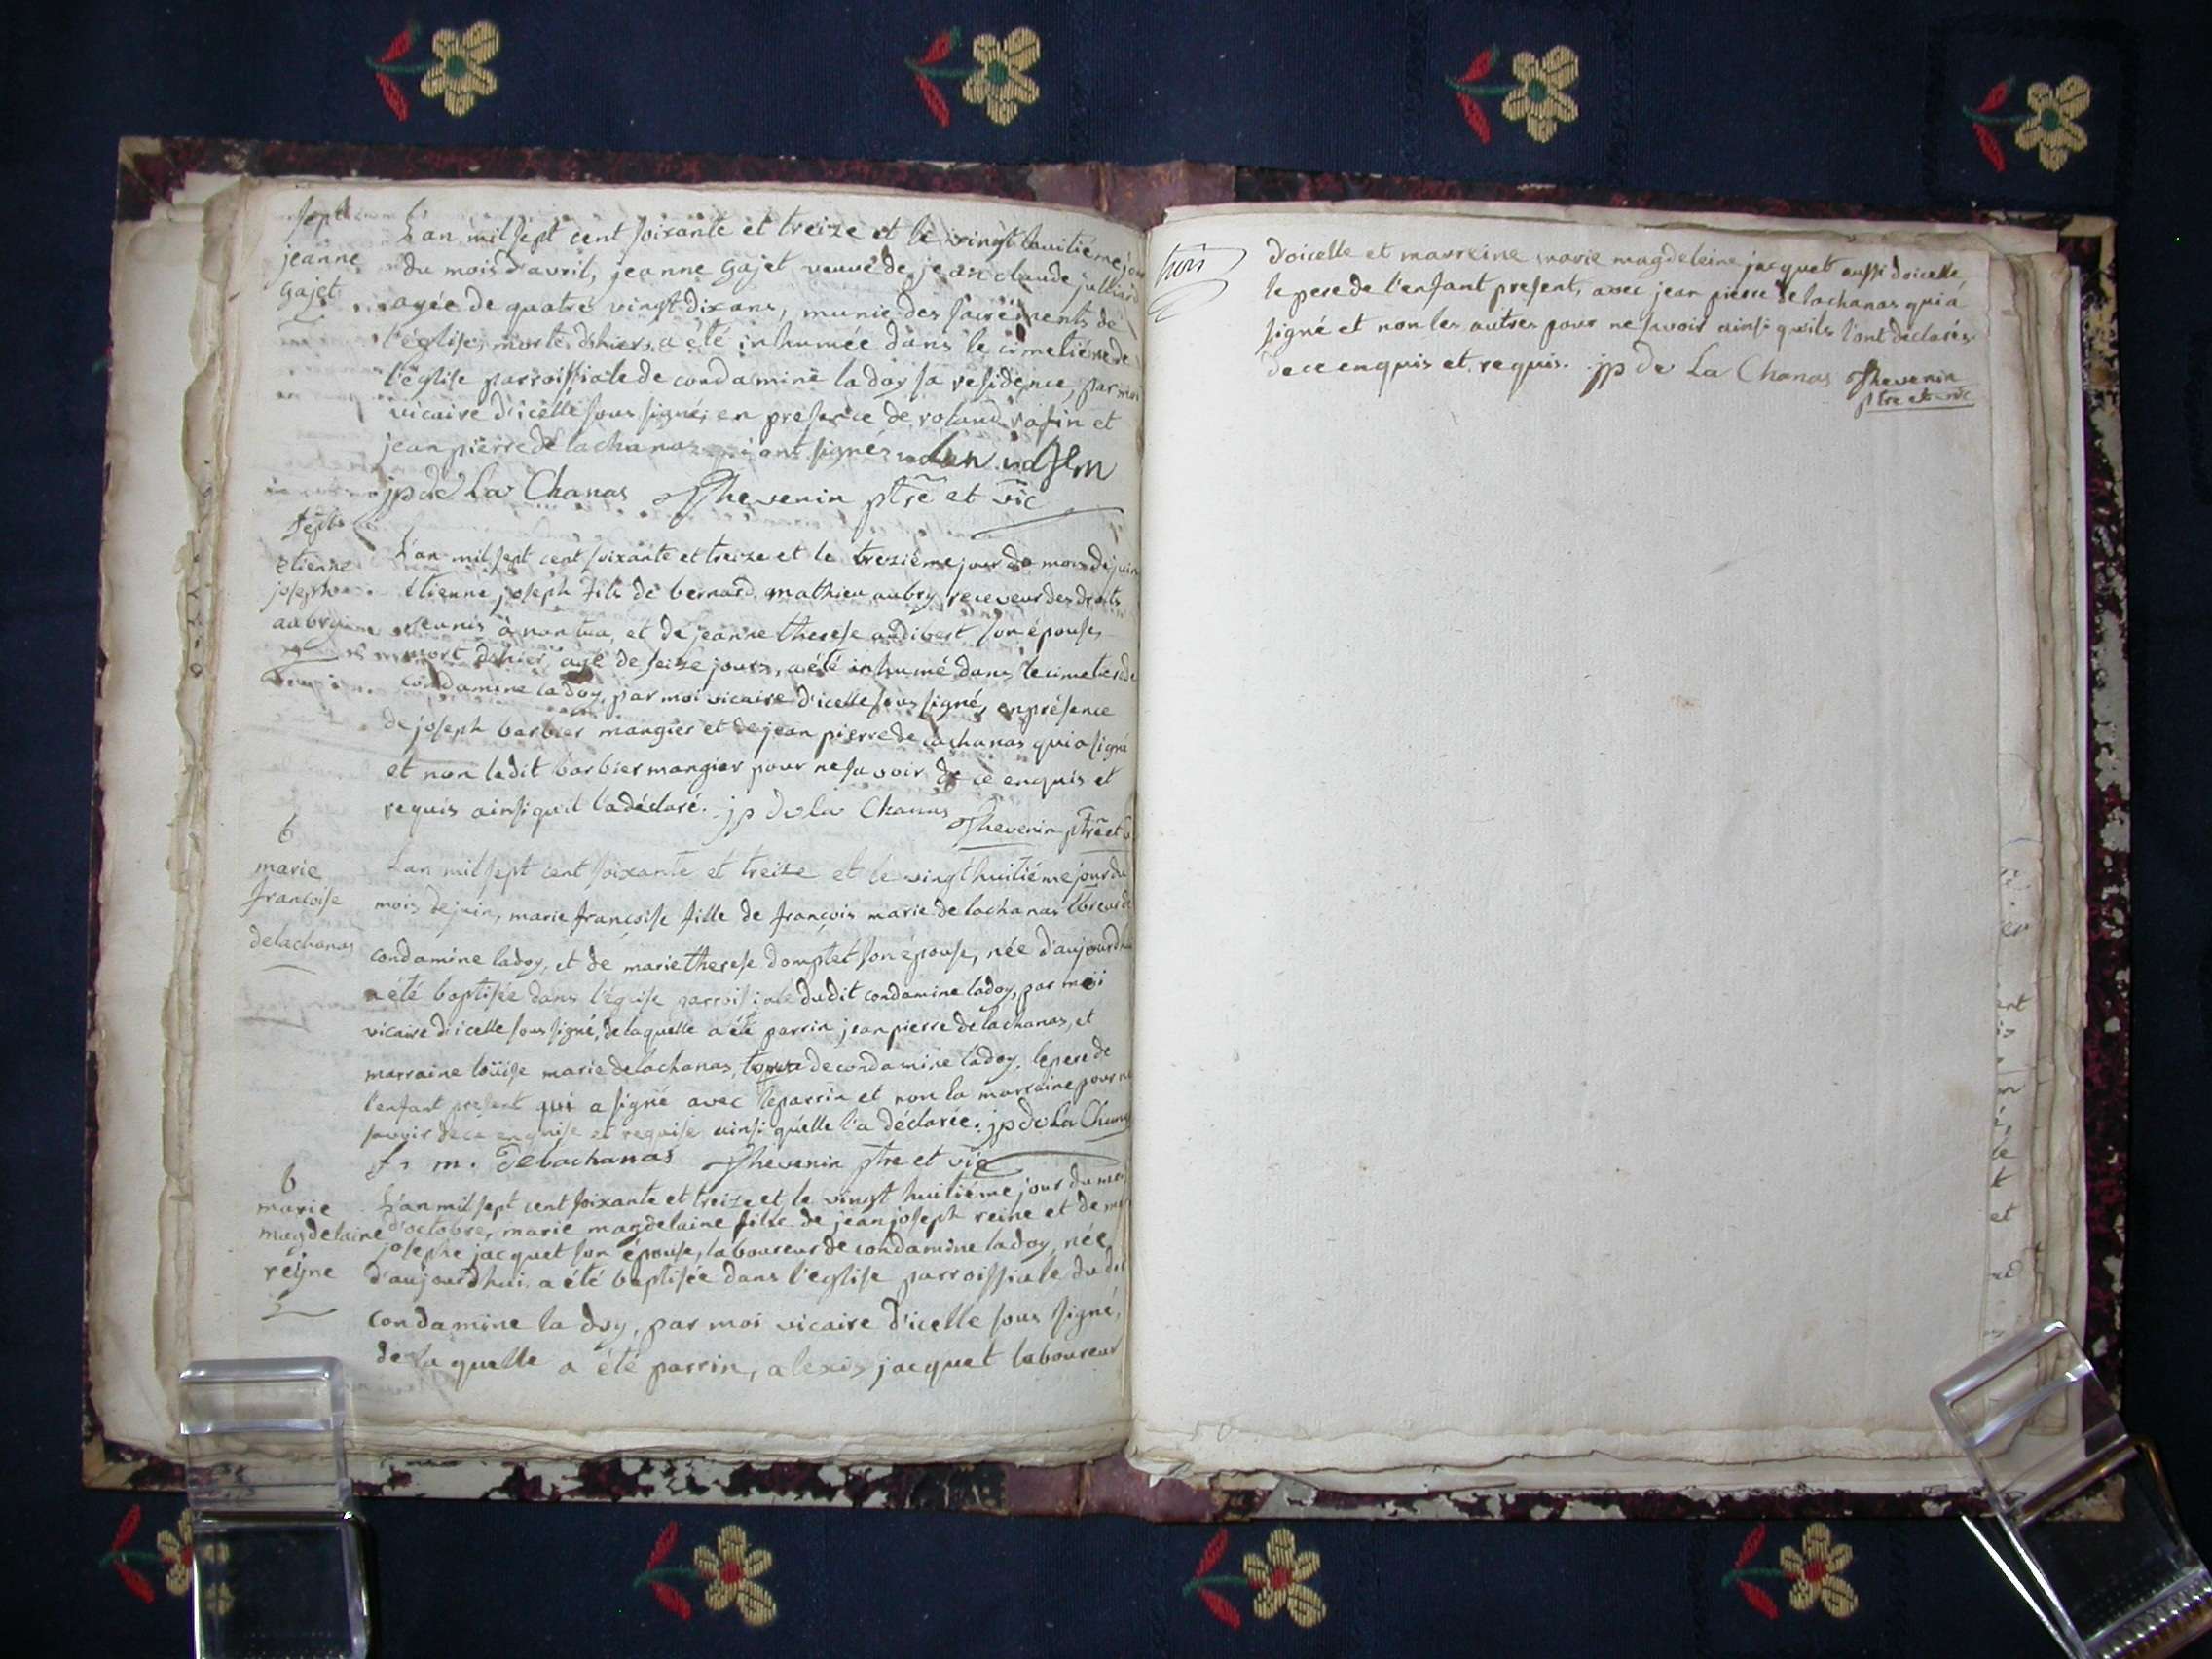 sept
jeanne
gajet
L'an mil sept cent soixante et treize et le vingt huitiéme jour
du mois d'avril, jeanne gajet veuve de jean claude julliard
agée de quatre vingt dix ans, munie des sacrements de
l'église, morte d'hier, a été inhumée dans le cimetiére de
l'église parroissiale de condamine la doy sa residence, par moi
vicaire d'icelle sous signé, en presence de roland rafin et
jean pierre de lachanas qui ont signés
jp de La Chanas Thevenin ptre et vic
sept
etienne
joseph
aubry
L'an mil sept cent soixante et treize et le treziéme jour du mois de juin
étienne joseph fils de bernard mathieu aubry receveur des droits
reunis à nantua, et de jeanne therese audibert son épouse,
mort d'hier, agé de seize jours, a été inhumé dans le cimetiere de
condamine la doy, par moi vicaire d'icelle sous signé, en présence
de joseph barbier mangier et de jean pierre de lachanas qui a signé
et non ledit barbier mangier pour ne savoir de ce enquis et
requis ainsi qu'il la déclaré. jp de la Chanas
Thevenin ptre et v
b
marie
francoise
delachanas
L'an mil sept cent soixante et treize et le vingt huitiéme jour du
mois de juin, marie françoise fille de françois marie de lachanas lbreur de
condamine ladoy, et de marie therese domptet son épouse, née d'aujourd'hui
a été baptisée dans l'église parroissiale dudit condamine ladoy, par moi
vicaire d'icelle sous signé, de laquelle a été parrin jean pierre delachanas, et
marraine loüise marie delachanas, de condamine ladoy, le pere de
l'enfant present qui a signé avec le parrin et non la marraine pour ne
savoir de ce enquise et requise ainsi qu'elle l'a déclarée. jp de La Chanas
f. m. Delachanas Thevenin ptre et vic
b
marie
magdelaine
reijne
L'an mil sept cent soixante et treize et le vingt huitiéme jour du mois
d'octobre, marie magdelaine fille de jean joseph reine et de marie
josephe jacquet son épouse, laboureur de condamine ladoy, née
d'aujourdhui, a été baptisée dans l'eglise parroissiale du dit
condamine la doy, par moi vicaire d'icelle sous signé,
de la quelle a été parrin, alexis jacquet laboureur
trois
d'oicelle et marreine marie magdeleine jacquet aussi doicelle,
le pere de l'enfant present, avec jean pierre delachanas qui a
signé et non les autres pour ne savoir ainsi quils l'ont declarés
de ce enquis et requis. jp de La Chanas Thevenin
ptre et vic